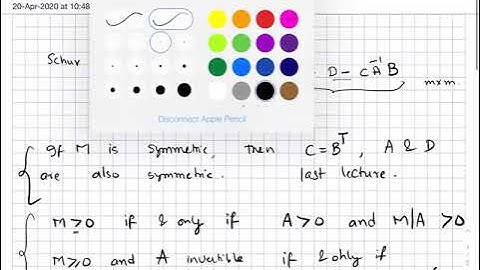 20-Apr-2020 at 10:48
Schur D - CA⁻¹B
mxm
Disconnect Apple Pencil
If M is symmetric, then C=Bᵀ, A & D
are also symmetric. last lecture.
M>0 if & only if A>0 and M|A >0
M≥0 and A invertible if & only if